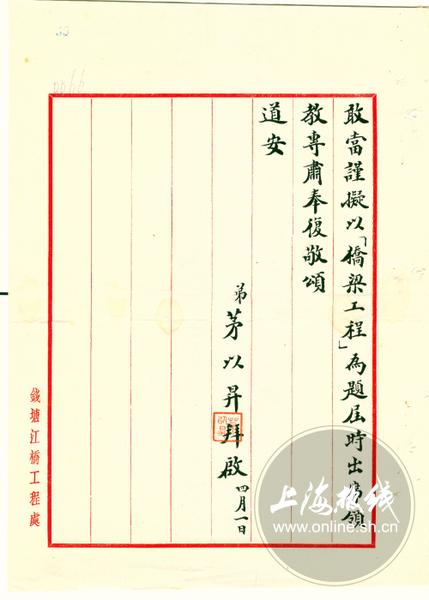 敢當謹擬以「橋梁工程」為題屆時出席領
教專肅奉復敬頌
道安
弟茅以昇拜啟 四月一日
錢塘江橋工程處
上海热线
www.online.sh.cn